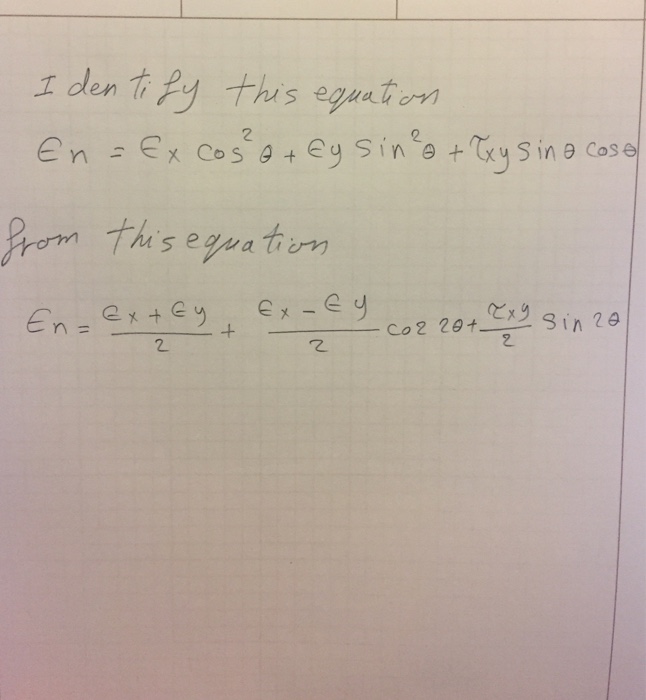 Identify this equation
ϵn = ϵx cos²θ + ϵy sin²θ + τxy sinθ cosθ
from this equation
ϵn = (ϵx + ϵy)/2 + (ϵx - ϵy)/2 co2 2θ + τxy/2 sin 2θ